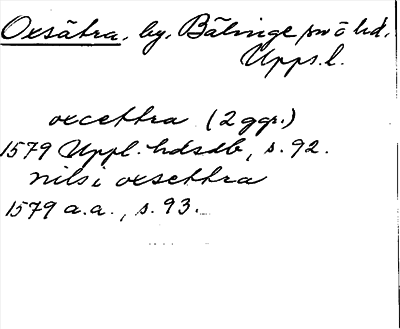 Oxsätra, by, Bälinge sn o hd,
Upps.l.
oxcettra (2 ggr.)
1579 Uppl. hdsdb, s. 92.
nils i oxsettra
1579 a.a., s. 93.